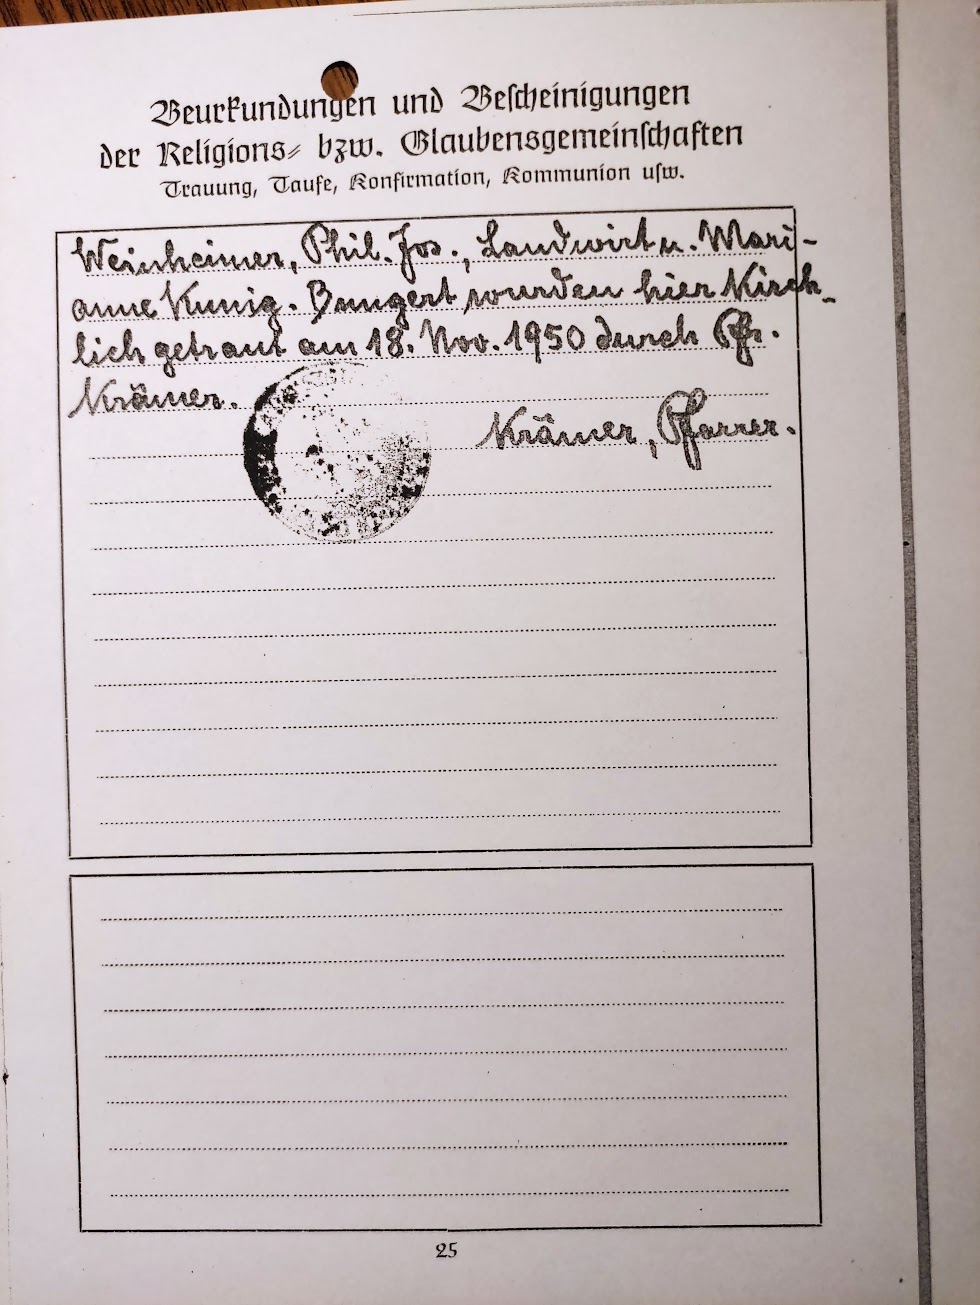 Beurkundungen und Bescheinigungen
der Religions- bzw. Glaubensgemeinschaften
Trauung, Taufe, Konfirmation, Kommunion usw.
Weinheimer, Phil. Jos., Landwirt u. Mari-
anne Kunig. Bungert wurden hier Kirch-
lich getraut am 18. Nov. 1950 durch Pfr.
Krämer.
Krämer, Pfarrer.
25